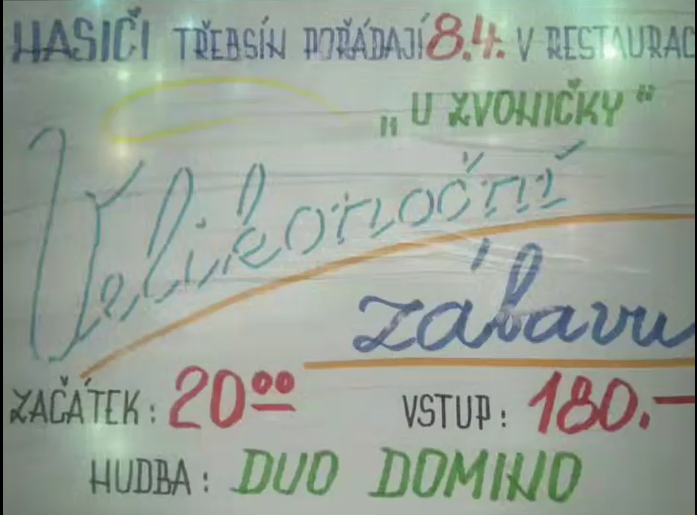 HASIČI TŘEBSÍN POŘÁDAJÍ 8.4. V RESTAURAC
„U ZVONIČKY"
Velikonoční
zábavu
ZAČÁTEK: 20⁰⁰ VSTUP: 180.-
HUDBA: DUO DOMINO